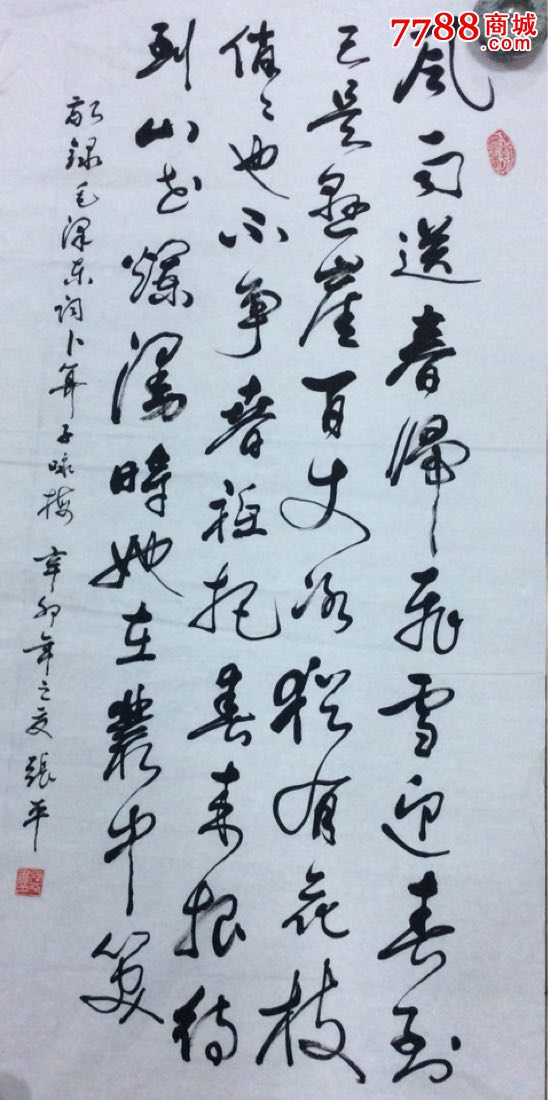 7788商城
.com
風雨送春歸飛雪迎春到
已是懸崖百丈冰猶有花枝
俏〻也不爭春祗把春來報待
到山花爛漫時她在叢中笑
敬録毛澤東詞卜算子咏梅 辛卯年之夏 張平